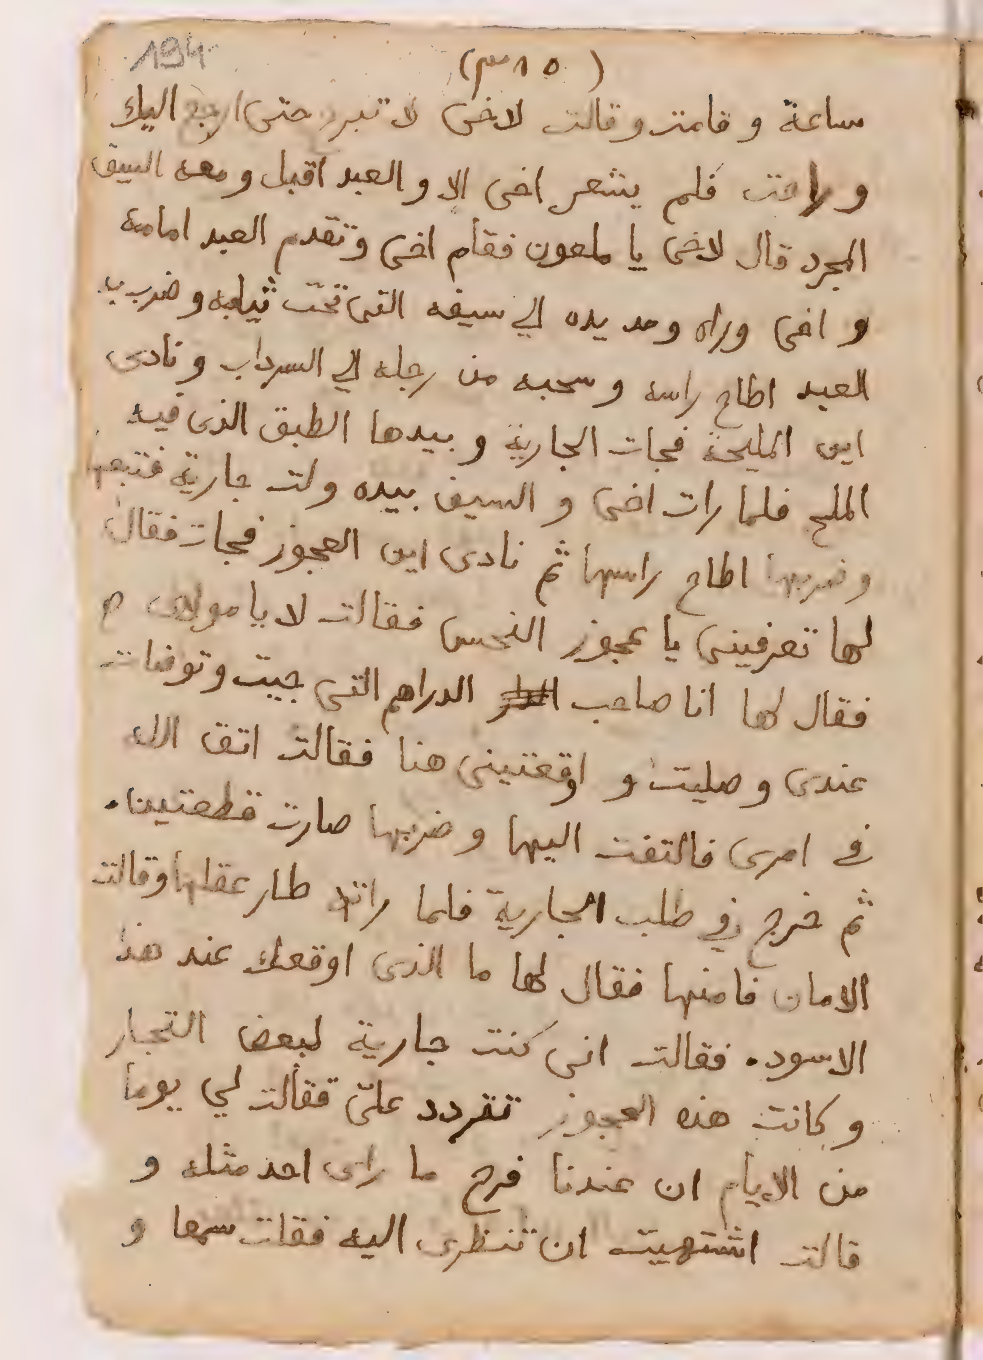 194
(٣١٥)
ساعة و قامت و قالت لاخى لا تبرح حتى ارجع اليك
و راحت فلم يشعر اخى الا و العبد اقبل و معه السيف
المجرد قال لاخى يا ملعون فقام اخى و تقدم العبد امامه
و اخى وراه و مد يده الي سيفه التى تحت ثيابه و ضرب به
العبد اطاح راسه و سحبه من رجله الي السرداب و نادى
اين المليحة فجات الجارية و بيدها الطبق الذى فيه
الملح فلما رات اخى و السيف بيده ولت جارية فتبعها
و ضربها اطاح راسها ثم نادى اين العجوز فجات فقال
لها تعرفينى يا عجوز النحس فقالت لا يا مولاى
فقال لها انا صاحب الدراهم التى جيت و توضات
عندى و صليت و اوقعتينى هنا فقالت اتق الله
في امرى فالتفت اليها و ضربها صارت قطعتين.
ثم خرج في طلب الجارية فلما راته طار عقلها و قالت
الامان فامنها فقال لها ما الذى اوقعك عند هذا
الاسود. فقالت انى كنت جارية لبعض التجار
و كانت هذه العجوز تتردد علىّ فقالت لي يوما
من الايام ان عندنا فرح ما راى احد مثله و
قالت اشتهيت ان تنظرى اليه فقلت سمعا و